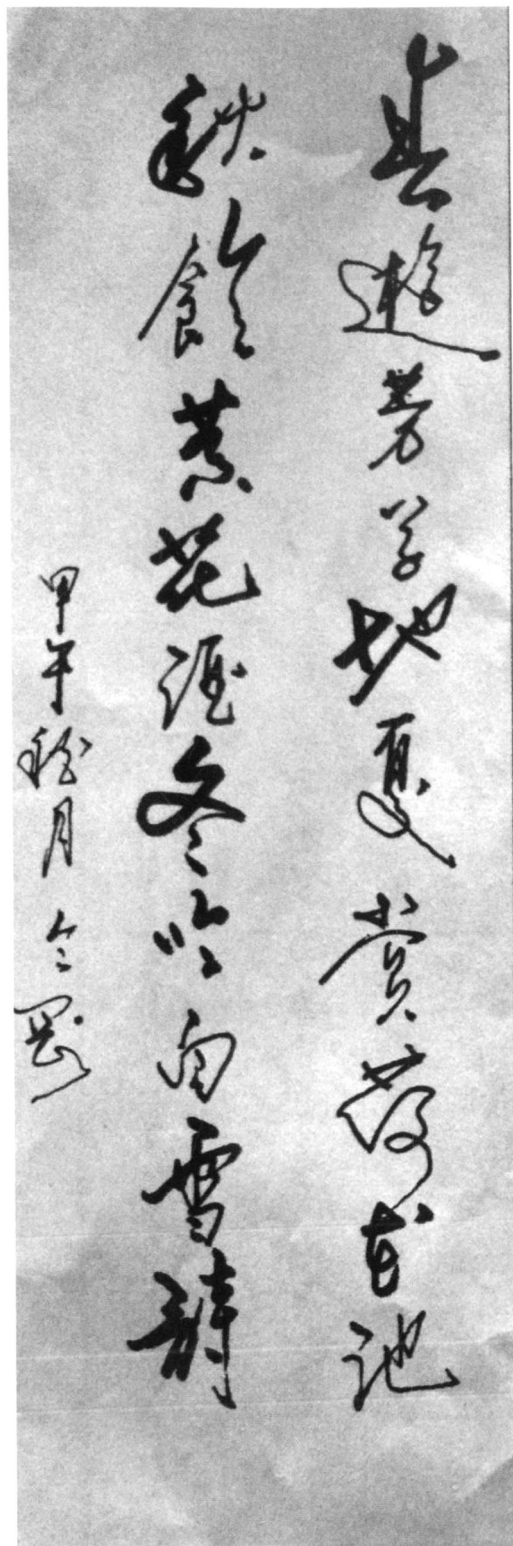 春遊芳草地夏賞荷花池
秋飲黄花酒冬吟白雪詩
甲午秋月